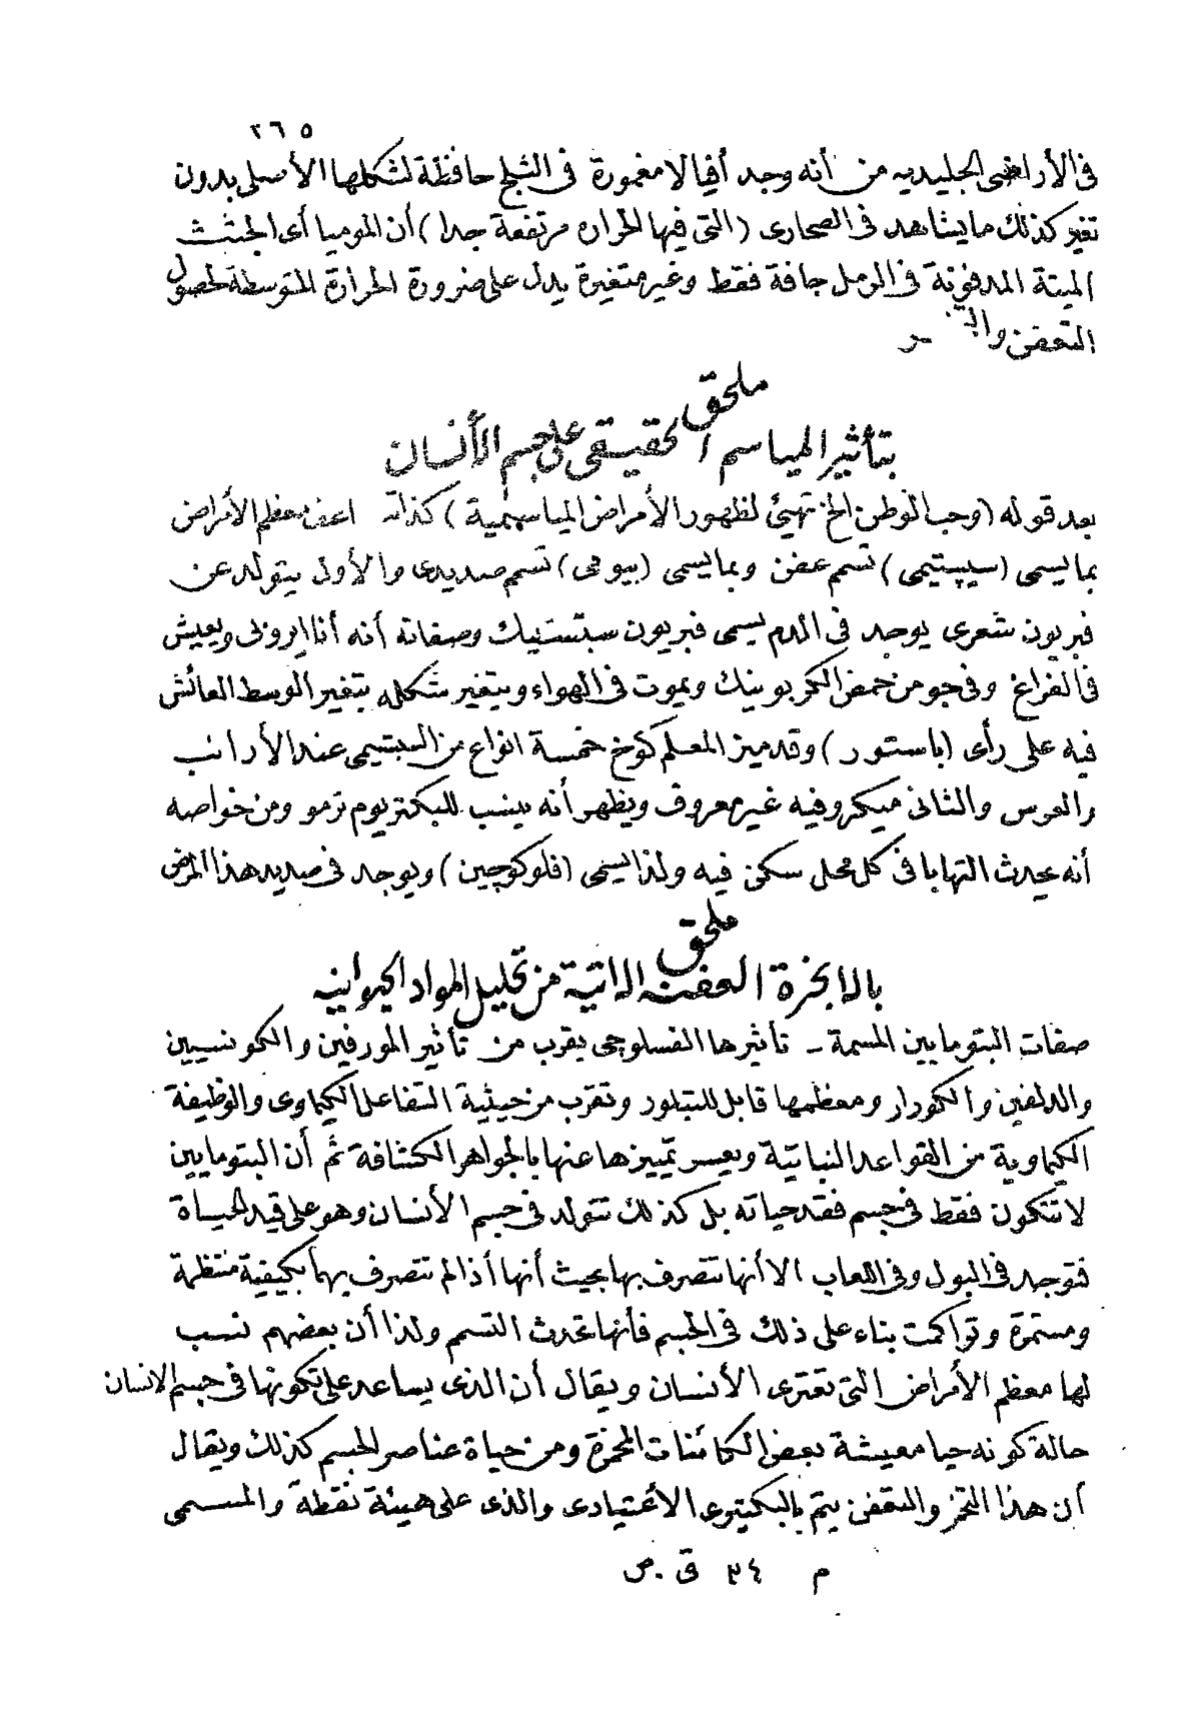 ٢٦٥
فى الأراضى الجليديه من أنه وجد أفيالا مغمورة فى الثلج حافظة لشكلها الأصلى بدون
تغير كذلك ما يشاهد فى الصحارى (التى فيها الحراره مرتفعة جدا) أن الموميا أى الجثث
الميتة المدفونة فى الرمل جافة فقط وغير متغيرة يدل على ضرورة الحرارة المتوسطة لحصول
التعفن
ملحق
بتأثير المياسم الحقيقى على جسم الأنسان
بعد قوله (وحب الوطن الخ تهيئ لظهور الأمراض المياسمية) كذا تعفن معظم الأمراض
بما يسمى (سيپتيمى) تسمم عفن وبما يسمى (بيومى) تسمم صديدى والأول يتولد عن
فبريون شعرى يوجد فى الدم يسمى فبريون سبتستيك وصفاته أنه أنايروبى ويعيش
فى الفراغ وفى جو من حمض الكربونيك ويموت فى الهواء ويتغير شكله بتغير الوسط العائش
فيه على رأى (باستور) وقد ميز المعلم كوخ خمسة انواع من السبتيمى عند الأرانب
والعرس والثانى ميكروفيه غير معروف ويظهر أنه ينسب للبكتريوم ترمو ومن خواصه
أنه يحدث التهابا فى كل محل سكن فيه ولذا يسمى (فلوكوجين) ويوجد فى صديد هذا المرض
ملحق
بالابخرة العفنه الاتية من تحليل المواد الحيوانيه
صفات البتومايين المسمة - تأثيرها الفسلوجى يقرب من تأثير المورفين والكونسيين
والدلفين والكورار ومعظمها قابل للتبلور وتقرب من حيثية التفاعل الكيماوى والوظيفة
الكيماوية من القواعد النباتية ويعسر تمييزها عنها بالجواهر الكشافة ثم أن البتومايين
لا تتكون فقط فى جسم فقد حياته بل كذلك تتولد فى جسم الأنسان وهو على قيد الحياة
فتوجد فى البول وفى اللعاب الا أنها تتصرف بها بحيث أنها أذا لم تتصرف بها بكيفية منتظمة
ومستمرة وتراكمت بناء على ذلك فى الجسم فأنها تحدث التسمم ولذا أن بعضهم نسب
لها معظم الأمراض التى تعترى الأنسان ويقال أن الذى يساعد على تكونها فى جسم الانسان
حالة كونه حيا معيشة بعض الكائنات المخمرة ومن حياة عناصر الجسم كذلك ويقال
أن هذا التخمر والتعفن يتم بالبكتيرى الأعتيادى والذى على هيئة نقطة والمسمى
م ٣٤ ق . ص